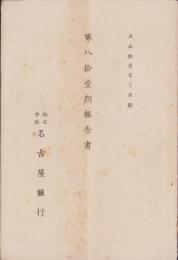 大正拾壹年下半期
第八拾壹期報告書
株式
會社
名古屋銀行